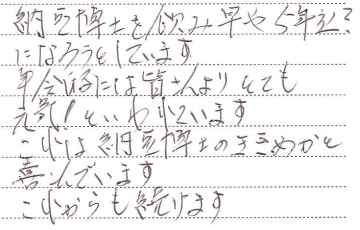 納豆博士を飲み早や5年立?
になろうとしています
年令の会には皆さんよりとても
元気!といわれています
これは納豆博士のききめかと
喜んでいます
これからも続けます